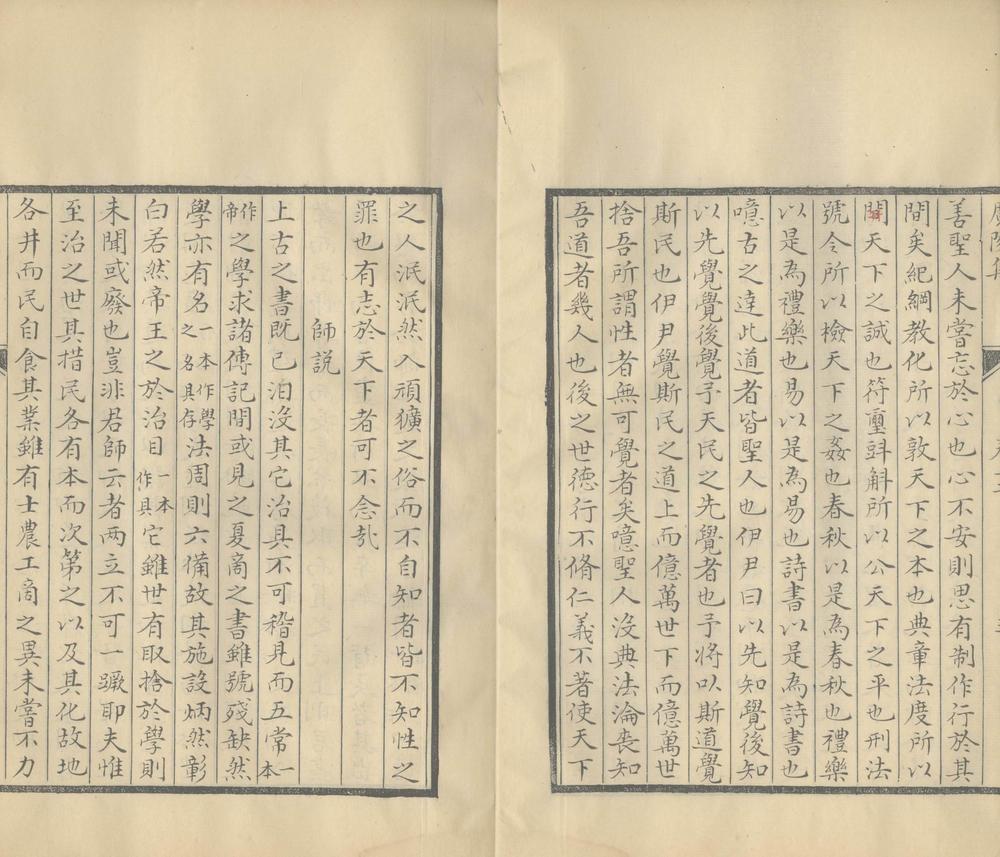 善聖人未嘗忘於心也心不安則思有制作行於其
間矣紀綱教化所以敦天下之本也典章法度所以
閑天下之誠也符璽斗斛所以公天下之平也刑法
號令所以檢天下之姦也春秋以是為春秋也禮樂
以是為禮樂也易以是為易也詩書以是為詩書也
噫古之達此道者皆聖人也伊尹曰以先知覺後知
以先覺覺後覺予天民之先覺者也予將以斯道覺
斯民也伊尹覺斯民之道上而億萬世下而億萬世
捨吾所謂性者無可覺者矣噫聖人沒典法淪喪知
吾道者幾人也後之世德行不脩仁義不著使天下
之人泯泯然入頑獷之俗而不自知者皆不知性之
罪也有志於天下者可不念哉
師説
上古之書既已汨沒其它治具不可稽見而五常一本
作帝之學求諸傳記間或見之夏商之書雖號殘缺然
學亦有名一本作學之名具存法周則六備故其施設炳然彰
白若然帝王之於治目一本作具它雖世有取捨於學則
未聞或廢也豈非君師云者两立不可一蹶耶夫惟
至治之世其措民各有本而次第之以及其化故地
各井而民自食其業雖有士農工商之異未嘗不力